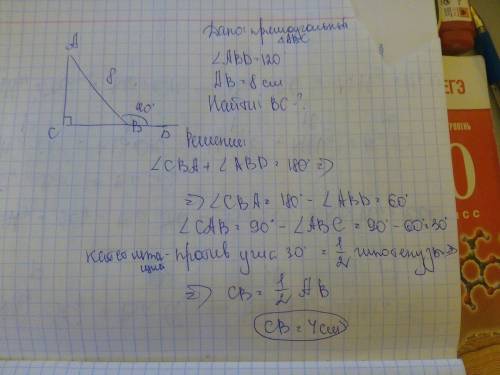 Дано: прямоугольный
△ABC
∠ABD=120°
AB=8 см
Найти: BC-?
A
8
120°
C
B
D
Решение:
∠CBA+∠ABD=180°⇒
⇒∠CBA=180°-∠ABD=60°
∠CAB=90°-∠ABC=90°-60°=30°
Катет лежа-
щий против угла 30° = 1/2 гипотенузы⇒
⇒ CB= 1/2 AB
CB=4см
ЕГЭ